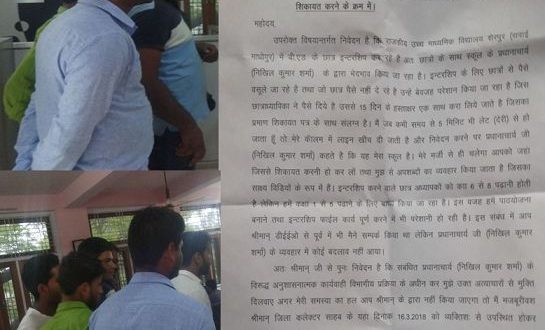 शिकायत करने के क्रम में।
महोदय,
उपरोक्त विषयान्तर्गत निवेदन है कि राजकीय उच्च माध्यमिक विद्यालय शेरपुर (सवाई
माधोपुर) में बी.एड के छात्र इन्टरशिप कर रहे है अतः छात्रो के साथ स्कूल के प्रधानाचार्य
(निखिल कुमार शर्मा) के द्वारा भेदभाव किया जा रहा है। इन्टरशिप के लिए छात्रों से पैसे
वसूले जा रहे है तथा जो छात्र पैसे नहीं दे रहे है उन्हे बेवजह परेशान किया जा रहा है जिस
छात्राध्यापिका ने पैसे दिये है उससे 15 दिन के हस्ताक्षर एक साथ करा लिये जाते है जिसका
प्रमाण शिकायत पत्र के साथ संलग्न है। मैं जब कभी समय से 5 मिनिट भी लेट (देरी) से हो
जाता हूँ तो मेरे कॉलम में लाइन खींच दी जाती है और निवेदन करने पर प्रधानाचार्य जी
(निखिल कुमार शर्मा) कहते है कि यह मेरा स्कूल है। मेरे मर्जी से ही चलेगा आपको जहां
जिससे शिकायत करनी हो कर लों तथा मुझ से अपशब्दों का व्यवहार किया जाता है जिसका
साक्ष्य विडियों के रूप में है। इन्टरशिप करने वाले छात्र अध्यापको को कक्षा 6 से 8 पढ़ानी होती
है लेकिन हमें कक्षा 1 से 5 पढ़ाने के लिए बाध्य किया जा रहा है। इस वजह हमें पाठयोजना
बनाने तथा इन्टरशिप फाईल कार्य पूर्ण करने में भी परेशानी हो रही है। इस संबंध में आप
श्रीमान् डीईईओ से पूर्व में भी मैने सम्पर्क किया था लेकिन प्रधानाचार्य जी (निखिल कुमार
शर्मा) के व्यवहार में कोई बदलाव नहीं आया।
अतः श्रीमान् जी से पुनः निवेदन है कि संबंधित प्रधानाचार्य (निखिल कुमार शर्मा) के
विरुद्ध अनुशासनात्मक कार्यवाही विभागीय प्रक्रिया के अधीन कर मुझे उक्त अत्याचारो से मुक्ति
दिलवाए अगर मेरी समस्या का हल आप श्रीमान् के द्वारा नहीं किया जाएगा तो मैं मजबूरीवश
श्रीमान् जिला कलेक्टर साहब के यहा दिनांक 16.3.2018 को व्यक्तिशः से उपस्थित होकर